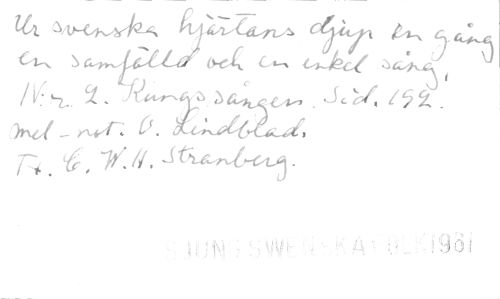 Ur svenska hjärtans djup en gång
en samfälld och en enkel sång,
N:r 2. Kungssången. Sid. 192.
mel-not. O. Lindblad.
Tx. C. W. H. Stranberg.
SJUNG SWENSKA FOLK 1961